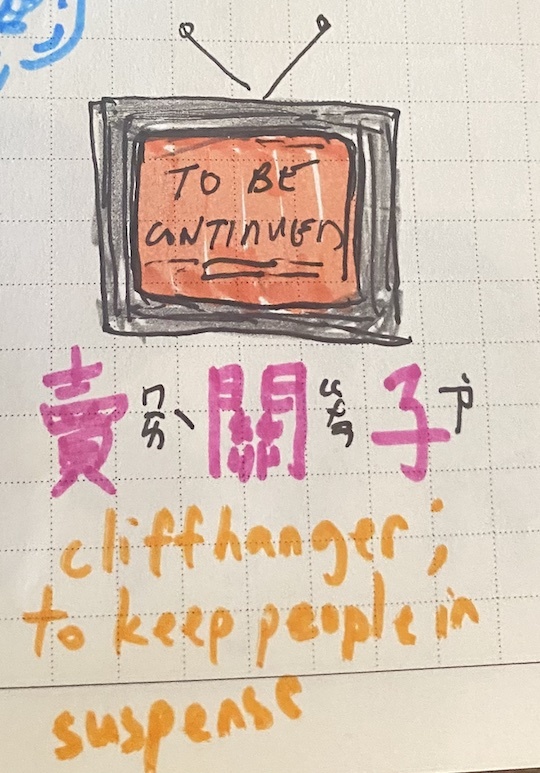 TO BE
CONTINUED
賣ㄇㄞˋ關ㄍㄨㄢ子˙ㄗ
cliffhanger;
to keep people in
suspense